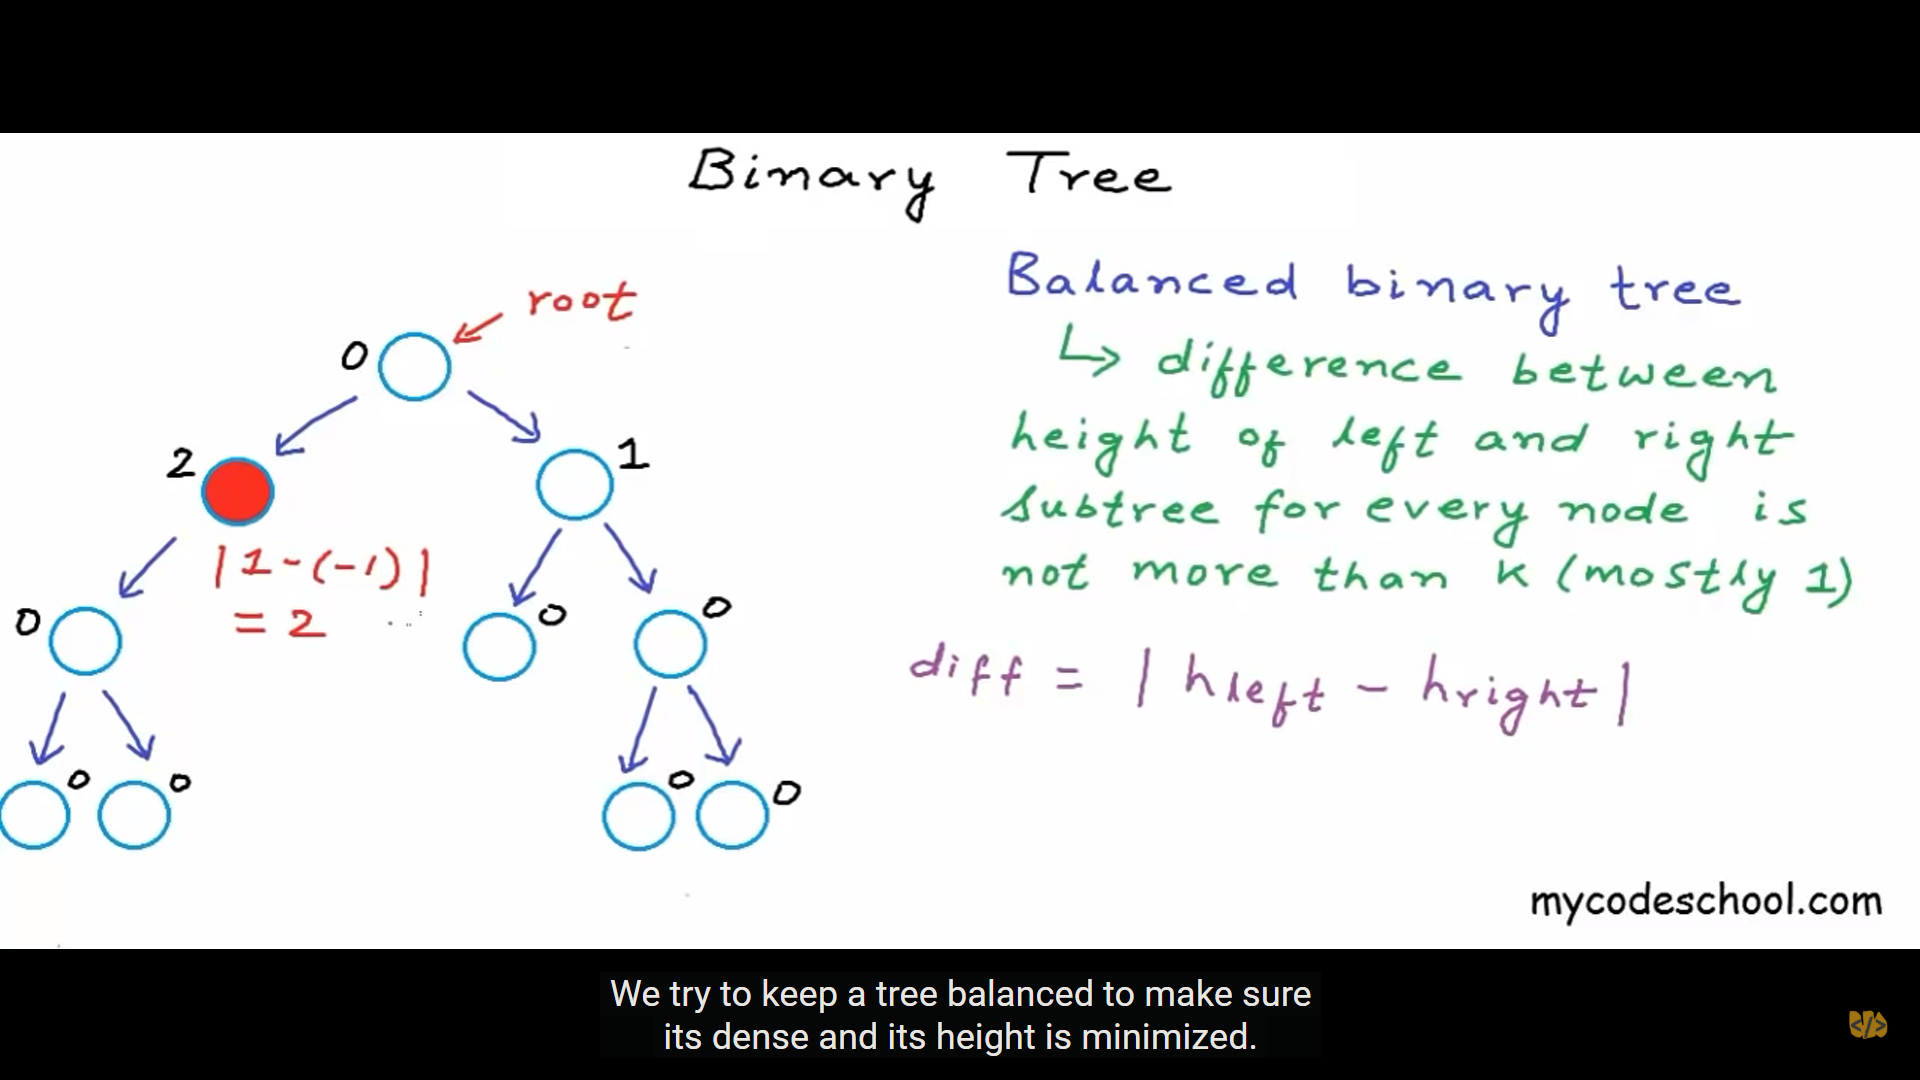 Binary Tree
root
0
2
1
|1-(-1)|
= 2
0
0
0
0
0
0
0
Balanced binary tree
↳ difference between
height of left and right
subtree for every node is
not more than k (mostly 1)
diff = | hleft - hright |
mycodeschool.com
We try to keep a tree balanced to make sure
its dense and its height is minimized.